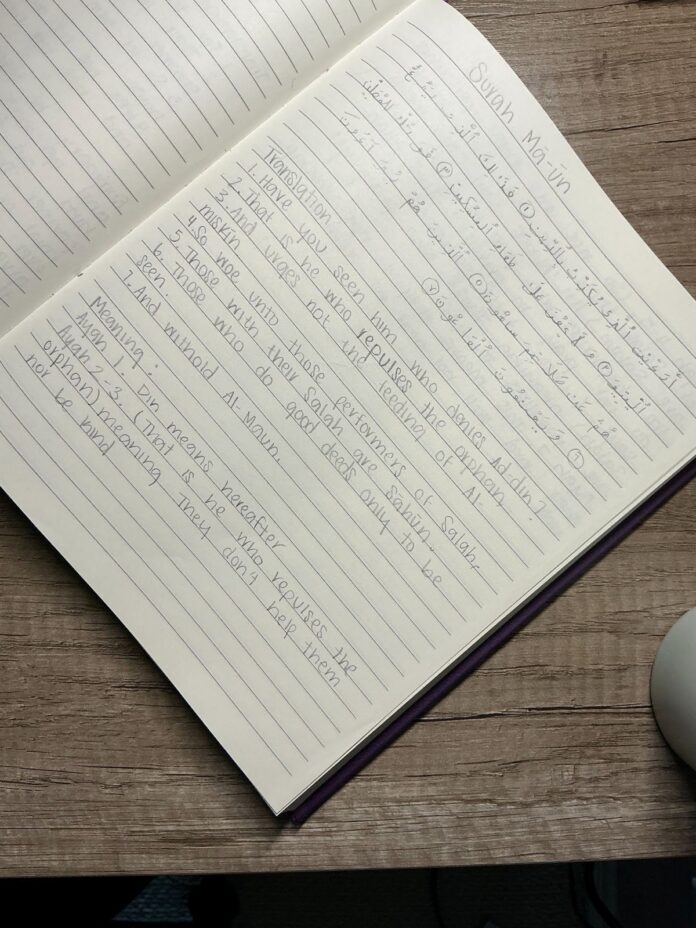 Surah Mā-ūn
أَرَءَيْتَ ٱلَّذِى يُكَذِّبُ بِٱلدِّينِ ١ فَذَٰلِكَ ٱلَّذِى يَدُعُّ
ٱلْيَتِيمَ ٢ وَلَا يَحُضُّ عَلَىٰ طَعَامِ ٱلْمِسْكِينِ ٣ فَوَيْلٌ لِّلْمُصَلِّينَ
هُمْ عَن صَلَاتِهِمْ سَاهُونَ ٥ ٱلَّذِينَ هُمْ يُرَآءُونَ
٦ وَيَمْنَعُونَ ٱلْمَاعُونَ ٧
Translation
1. Have you seen him who denies Ad-din?
2. That is he who repulses the orphan,
3. And urges not the feeding of Al-
miskin
4. So woe unto those performers of Salah,
5. Those with their Salah are sāhūn.
6. Those who do good deeds only to be
seen.
7. And withold Al-Maun.
Meaning:
Ayah 1. Din means hereafter
Ayah 2-3. (That is he who repulses the
orphan) meaning They don't help them
nor be kind